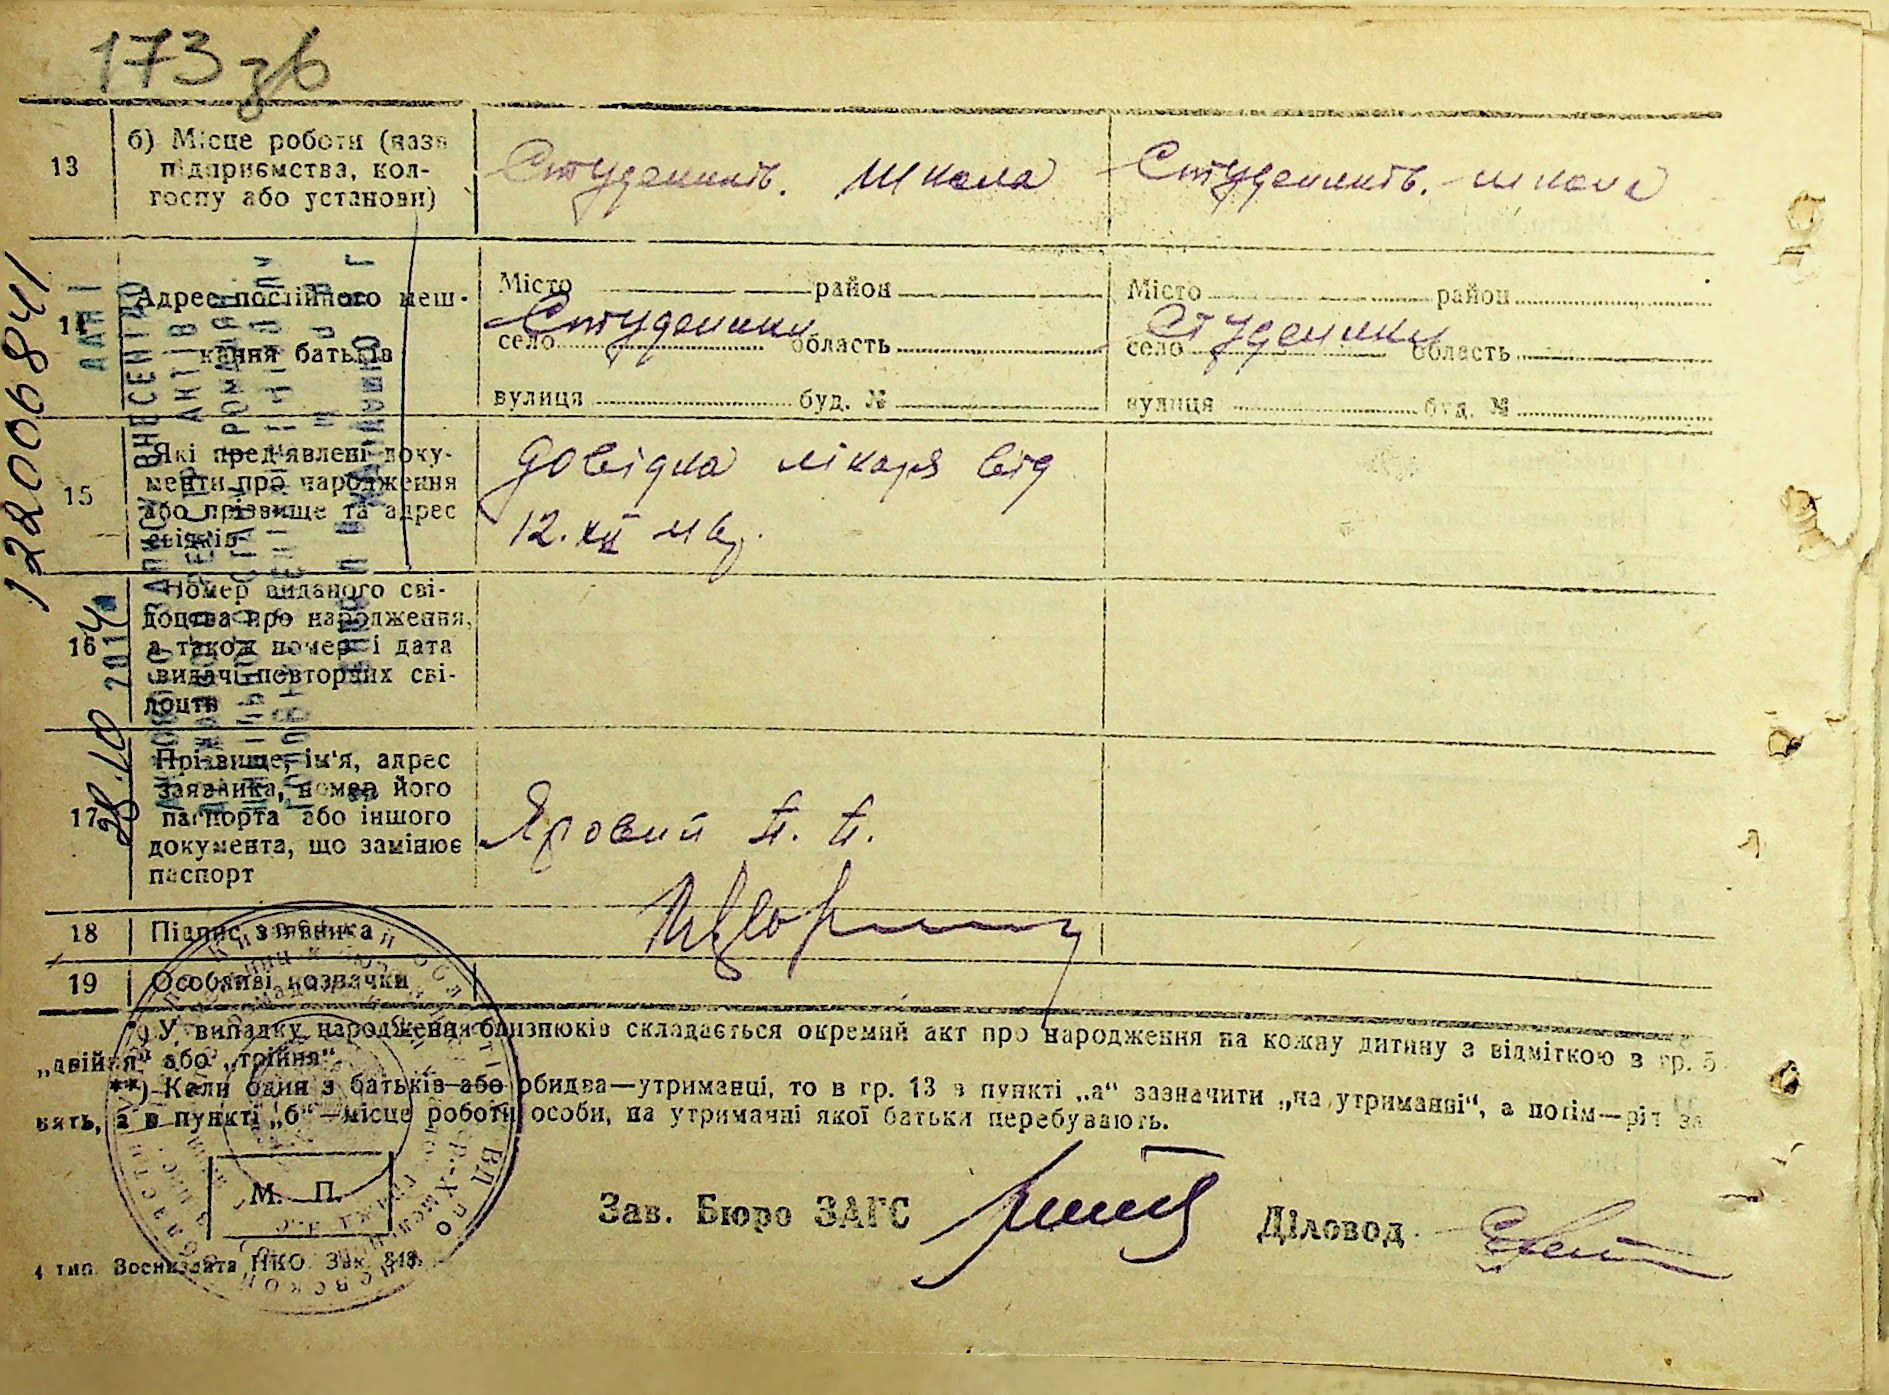 173 зв
13
б) Місце роботи (назв
підприємства, кол-
госпу або установи)
Студеників. школа
Студеників. школа
14
Адрес постійного меш-
кання батьків
Місто район
Студеники
село область
вулиця буд. №
Місто район
Студеники
село область
вулиця буд. №
15
Які пред'явлені доку-
менти про народження
або прізвище та адрес
свідків
довідка лікаря від
12.XII
16
Номер виданого сві-
доцтва про народження,
а також номер і дата
видачі повторних сві-
доцтв
17
Прізвище, ім'я, адрес
заявника, номер його
паспорта або іншого
документа, що замінює
паспорт
Яровий П. П.
18
Підпис заявника
19
Особливі позначки
*) У випадку народження близнюків складається окремий акт про народження на кожну дитину з відміткою в гр. 5
„двійня“ або „трійня“.
**) Коли один з батьків або обидва—утриманці, то в гр. 13 в пункті „а“ зазначити „на утриманні“, а потім—рід за
нять, а в пункті „б“—місце роботи особи, на утриманні якої батьки перебувають.
М. П.
Зав. Бюро ЗАГС
Діловод
4 тип. Воениздата НКО Зак.
122006841
28.10 2014